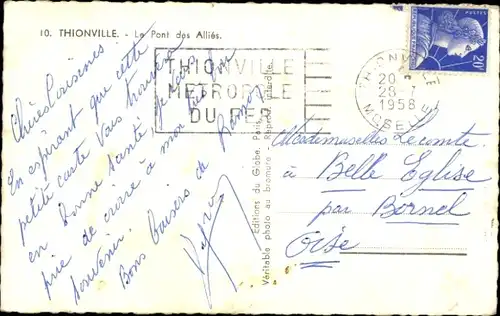 10. THIONVILLE. - Le Pont des Alliés.
Chères Cousines
En espérant que cette
petite carte vous trouvera
en bonne santé, je vous
prie de croire à mon
souvenir.
Bons baisers de
Editions du Globe, Paris.
Véritable photo au bromure
THIONVILLE
METROPOLE
DU FER
THIONVILLE
20
28 - 7
1958
MOSELLE
POSTES
20F
Mesdemoiselles Lecomte
à Belle Eglise
par Bornel
Oise